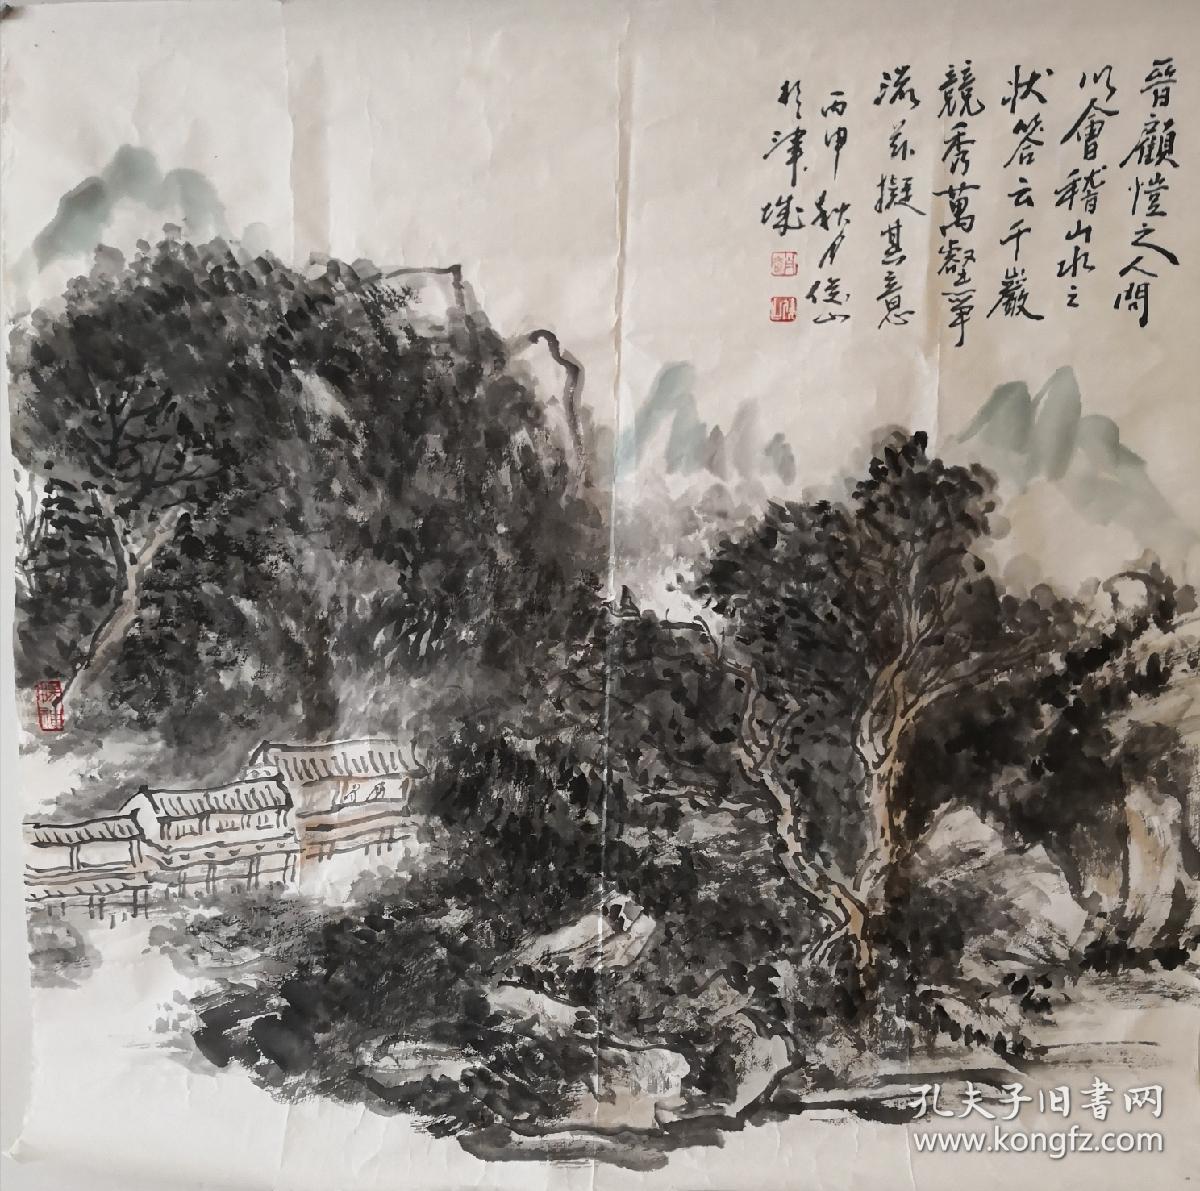 晉顧愷之人問
以會稽山水之
狀答云千巖
競秀萬壑爭
流兹擬其意
丙申秋月俊山
於津城
孔夫子旧书网
www.kongfz.com